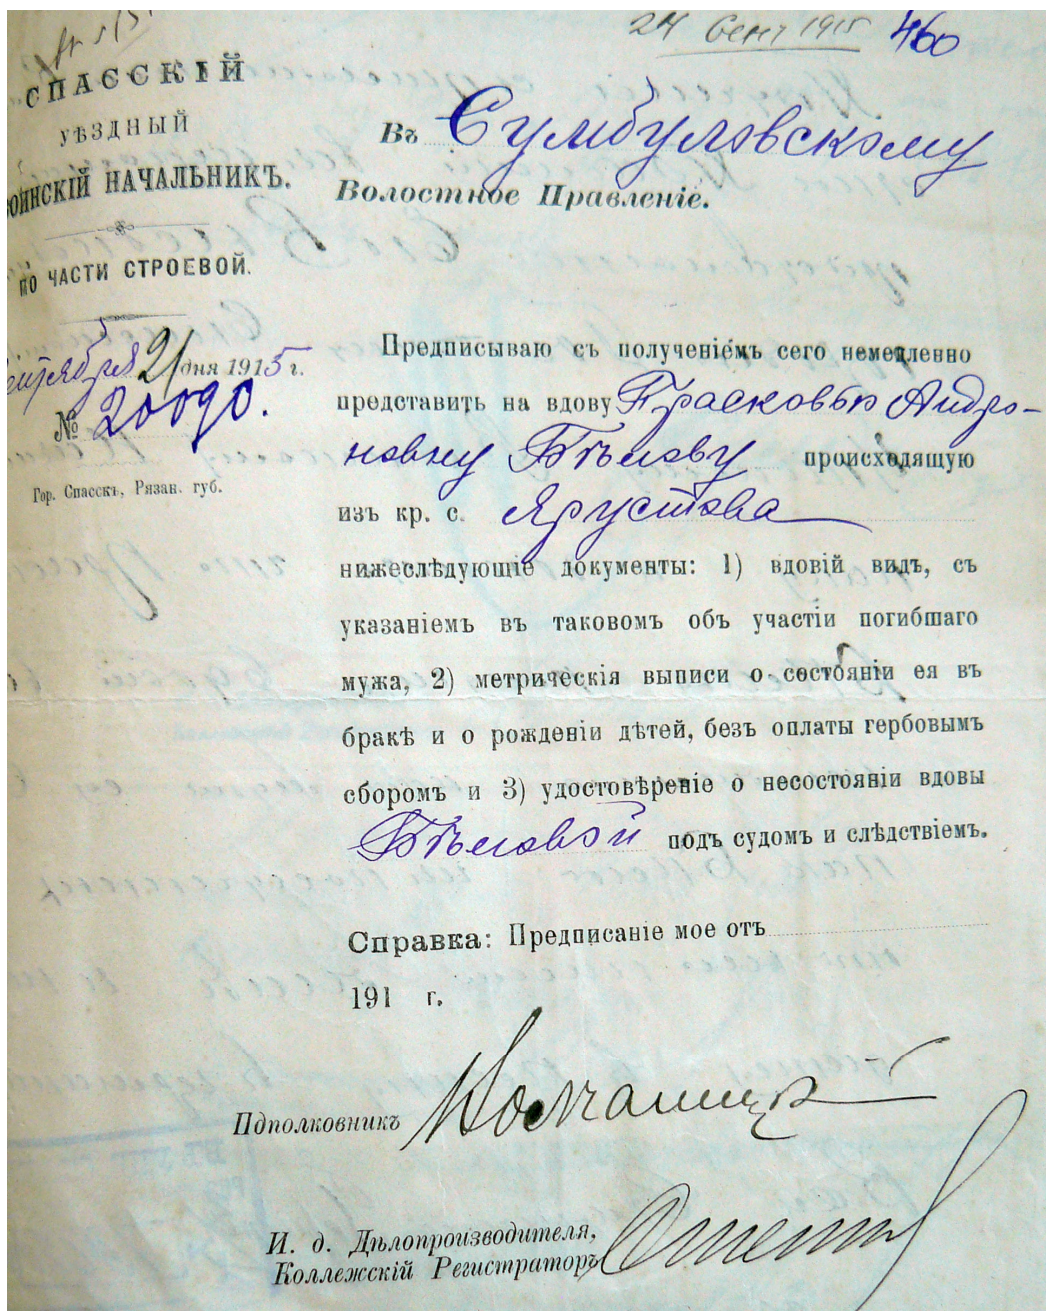 24 Сент 1915 460
СПАССКІЙ
УѢЗДНЫЙ
ВОИНСКІЙ НАЧАЛЬНИКЪ.
ПО ЧАСТИ СТРОЕВОЙ.
Сентября 21 дня 1915 г.
№ 20090.
Гор. Спасскъ, Рязан. губ.
Въ Сумбуловскому
Волостное Правленіе.
Предписываю съ полученіемъ сего немедленно
представить на вдову Прасковью Андро-
новну Бѣлову происходящую
изъ кр. с. Ярустова
нижеслѣдующіе документы: 1) вдовій видъ, съ
указаніемъ въ таковомъ объ участіи погибшаго
мужа, 2) метрическія выписи о состояніи ея въ
бракѣ и о рожденіи дѣтей, безъ оплаты гербовымъ
сборомъ и 3) удостовѣреніе о несостояніи вдовы
Бѣловой подъ судомъ и слѣдствіемъ.
Справка: Предписаніе мое отъ
191 г.
Пдполковникъ
И. д. Дѣлопроизводителя,
Коллежскій Регистраторъ